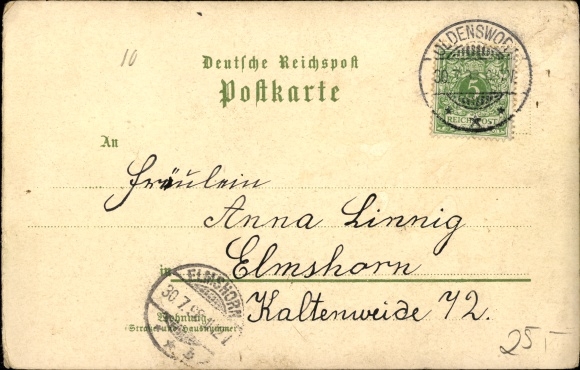 10
Deutsche Reichspost
Postkarte
OLDENSWORT
30.7.
5
REICHSPOST
An
Fräulein
Anna Linnig
in Elmshorn
ELMSHORN
30.7.
Kaltenweide 72.
Wohnung
(Straße und Hausnummer)
25,-